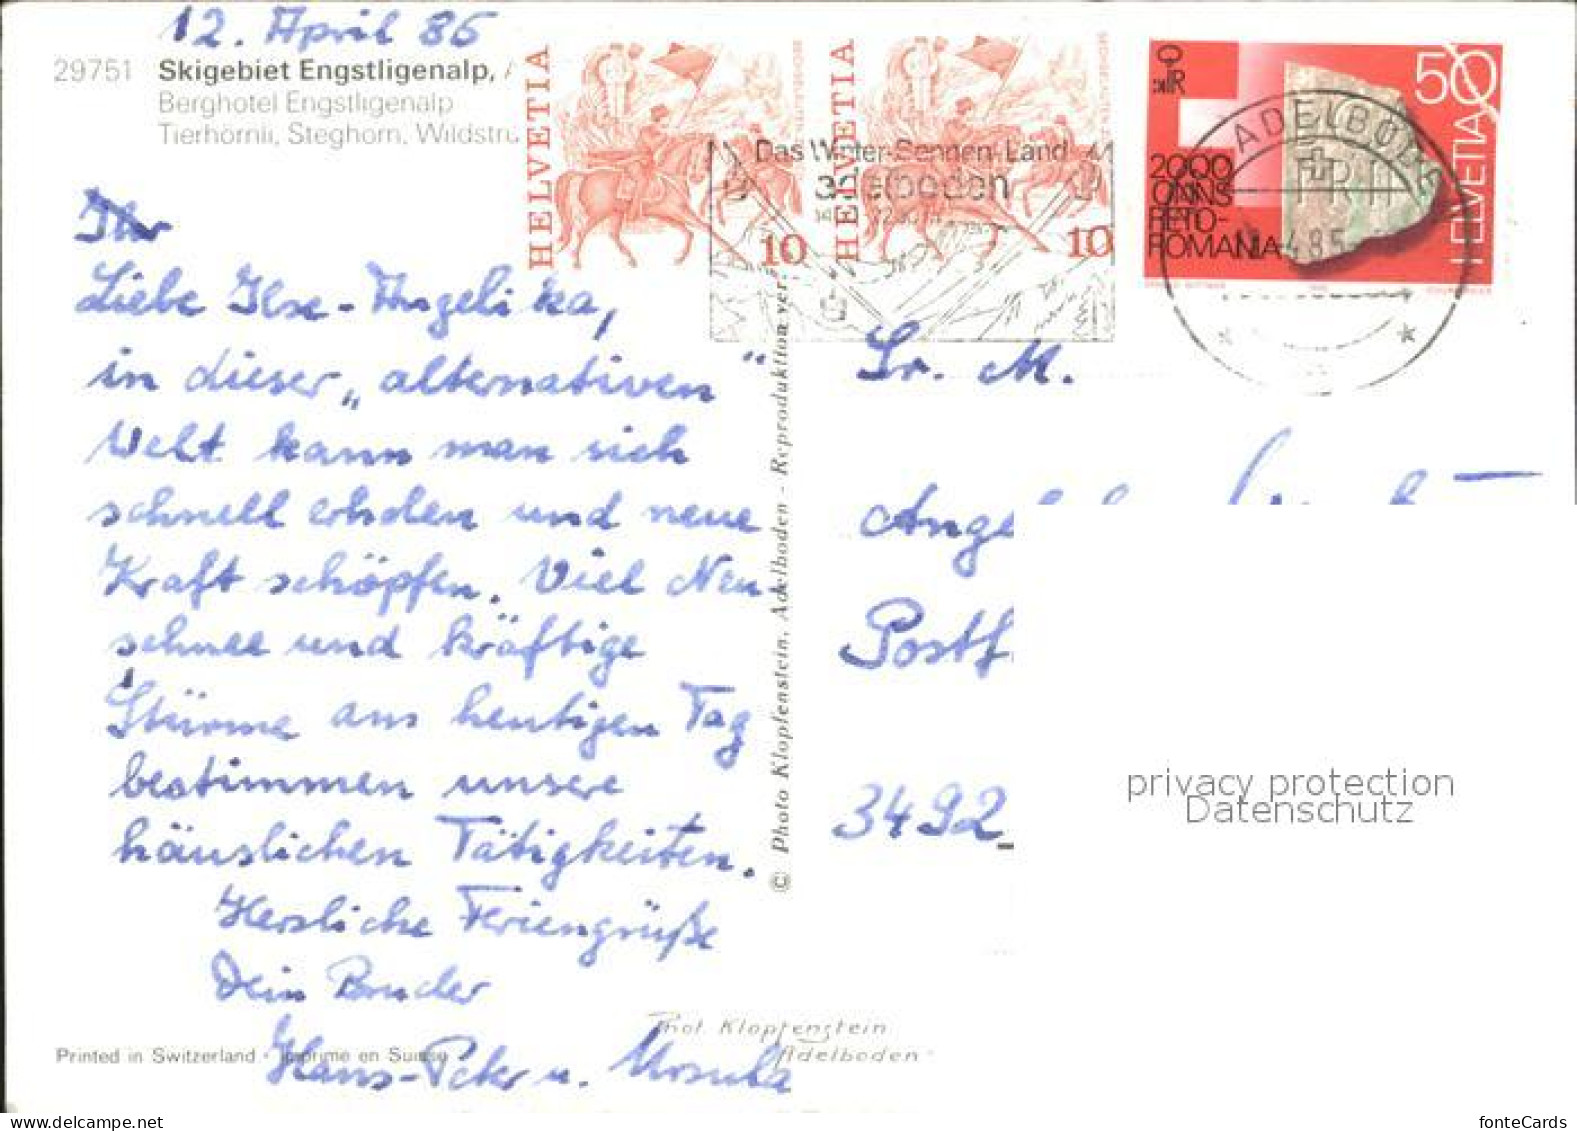 12. April 85
29751 Skigebiet Engstligenalp,
Berghotel Engstligenalp
Tierhörnli, Steghorn, Wildstru
HELVETIA
10
HELVETIA
10
50
HELVETIA
2000
ONNS
RETO-
ROMANIA
Das Winter-Sonnen-Land
adelboden
ADELBODEN
Ihr
Liebe Ilse-Angelika,
in dieser „alternativen"
Welt kann man sich
schnell erholen und neue
Kraft schöpfen. Viel Neu-
schnee und kräftige
Stürme am heutigen Tag
bestimmen unsere
häuslichen Tätigkeiten.
Herzliche Feriengrüße
Dein Bruder
Hans-Peter u. Ursula
Printed in Switzerland · Imprimé en Suisse
© Photo Klopfenstein, Adelboden - Reproduktion ver.
Phot Klopfenstein
Adelboden
Sr. M.
Ange
Postf
3492
privacy protection
Datenschutz
fonteCards